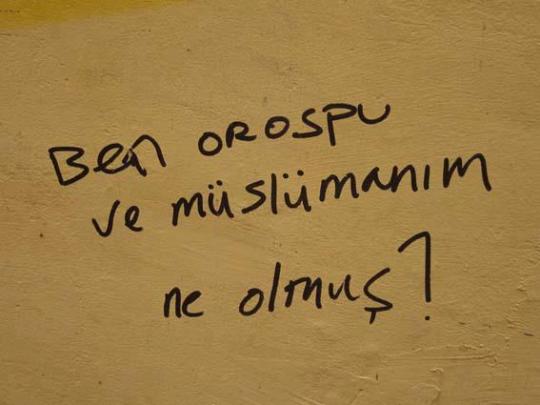 Ben orospu
ve müslümanım
ne olmuş?